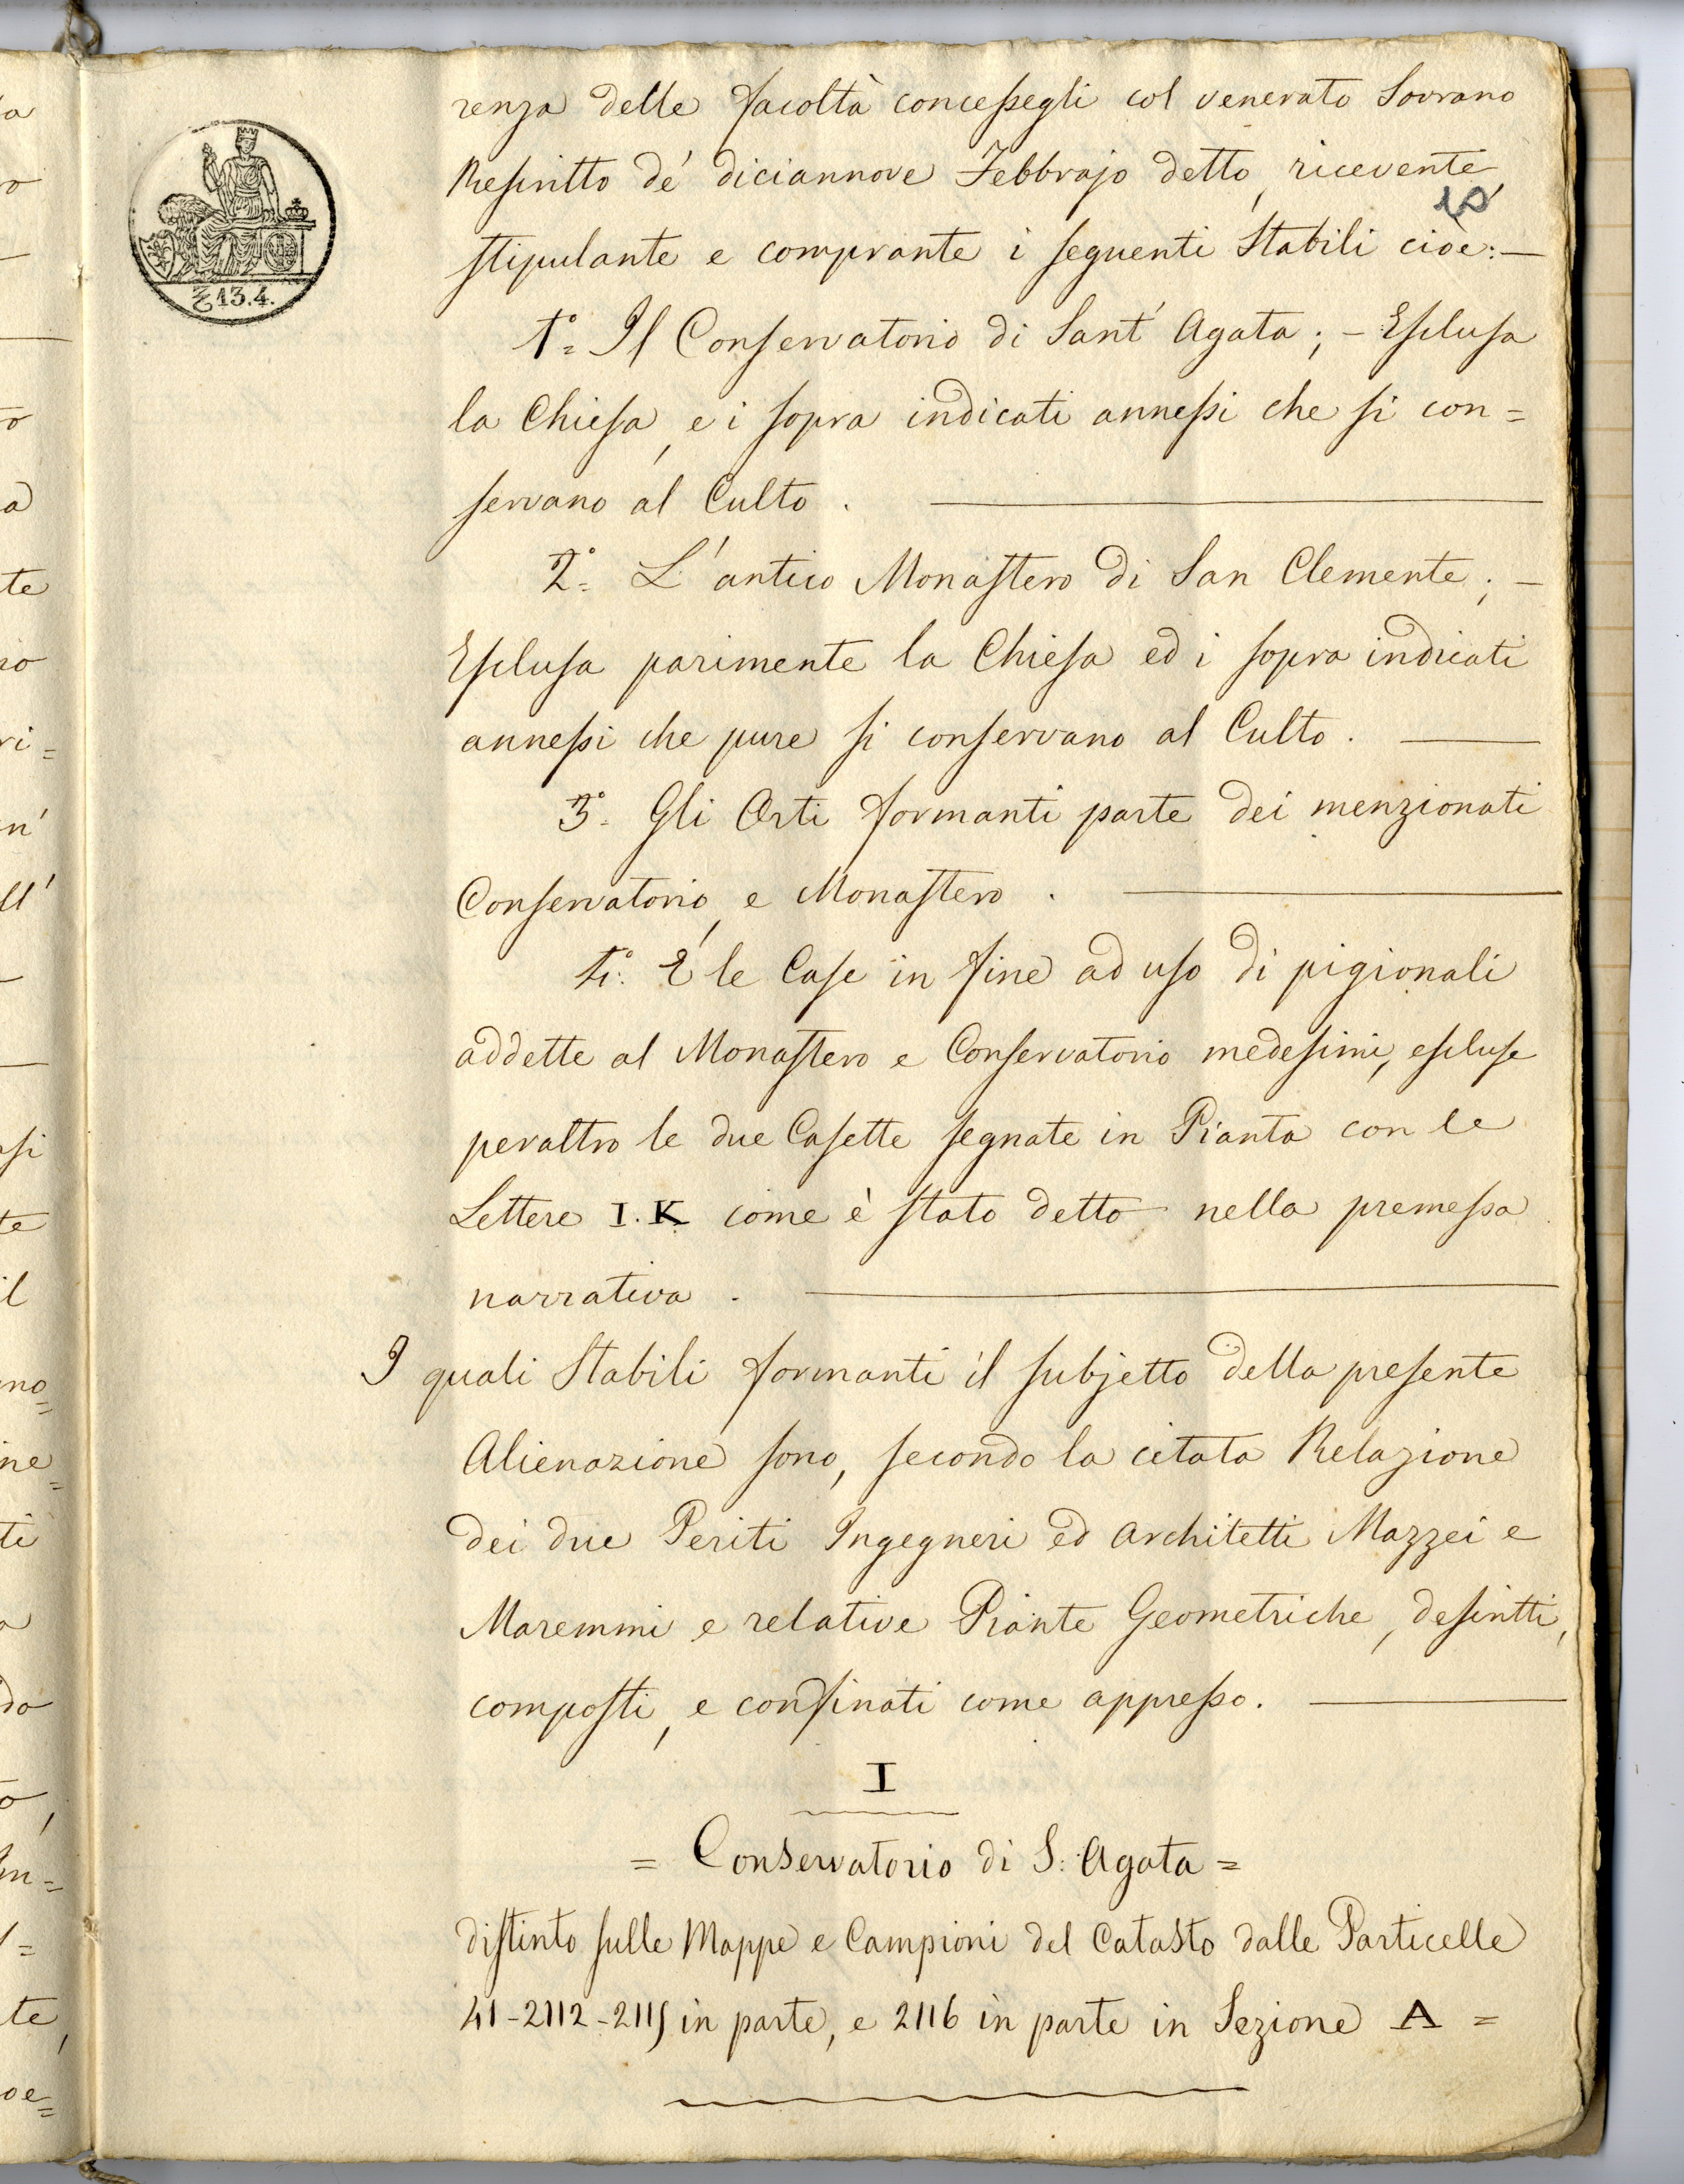 renza delle facoltà concessegli col venerato Sovrano
Rescritto de' diciannove Febbrajo detto, ricevente,
stipulante e comprante i seguenti Stabili cioè: —
13.4.
1.° Il Conservatorio di Sant' Agata; — Esclusa
la Chiesa, e i sopra indicati annessi che si con=
servano al Culto.
2.° L' antico Monastero di San Clemente; —
Esclusa parimente la Chiesa ed i sopra indicati
annessi che pure si conservano al Culto.
3.° Gli Orti formanti parte dei menzionati
Conservatorio, e Monastero.
4.° E le Case in fine ad uso di pigionali
addette al Monastero e Conservatorio medesimi, escluse
peraltro le due Casette segnate in Pianta con le
Lettere I. K. come è stato detto nella premessa
narrativa.
I quali Stabili formanti il subjetto della presente
Alienazione sono, secondo la citata Relazione
dei due Periti Ingegneri ed Architetti Mazzei e
Maremmi e relative Piante Geometriche, descritti,
composti, e confinati come appresso.
I
= Conservatorio di S: Agata =
distinto sulle Mappe e Campioni del Catasto dalle Particelle
41-2112-2115 in parte, e 2116 in parte in Sezione A =